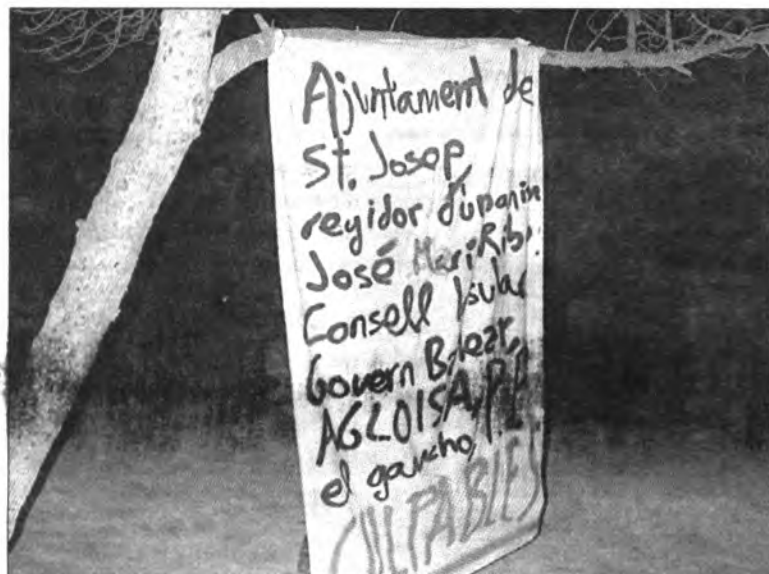 Ajuntament de
St. Josep,
regidor d'upanis
José Mari Rib.
Consell Isular
Govern Balear,
AGLOISA, P.P.
el gaucho,
CULPABLES!